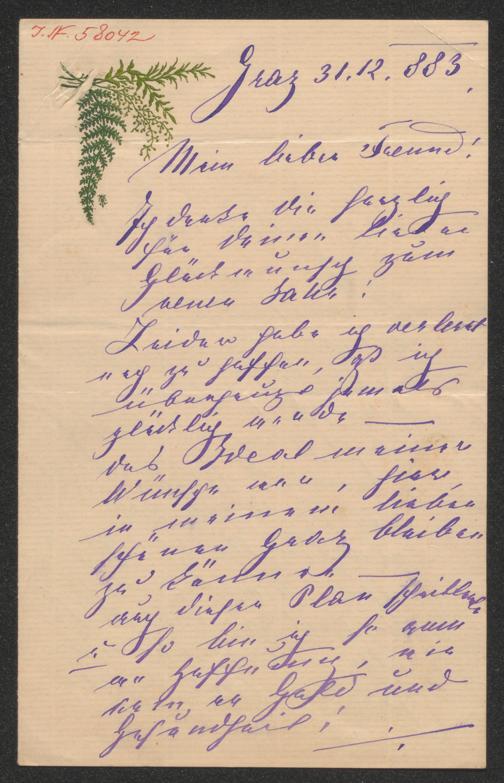 J. N. 58042
Graz 31.12. 883.
Mein lieber Freund!
Ich danke dir herzlich
für deinen lieben
Glückwunsch zum
neuen Jahr!
Leider habe ich verlernt
noch zu hoffen, daß ich
überhaupt jemals
glücklich werde —
das Ideal meiner
Wünsche war, hier,
in meinem lieben
schönen Graz bleiben
zu können —
auch dieser Plan scheiterte
u so bin ich so arm
an Hoffnung, wie
an Geld und
Gesundheit!